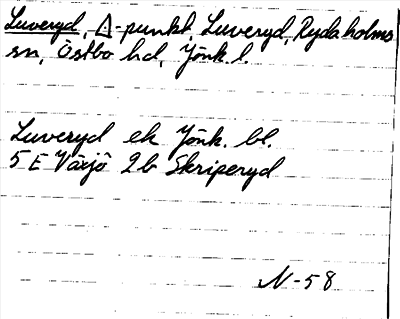 Luveryd, Δ-punkt, Luveryd, Rydaholms
sn, Östbo hd, Jönk. l.
Luveryd ek Jönk. bl.
5 E Växjö 2b Skriperyd
N-58